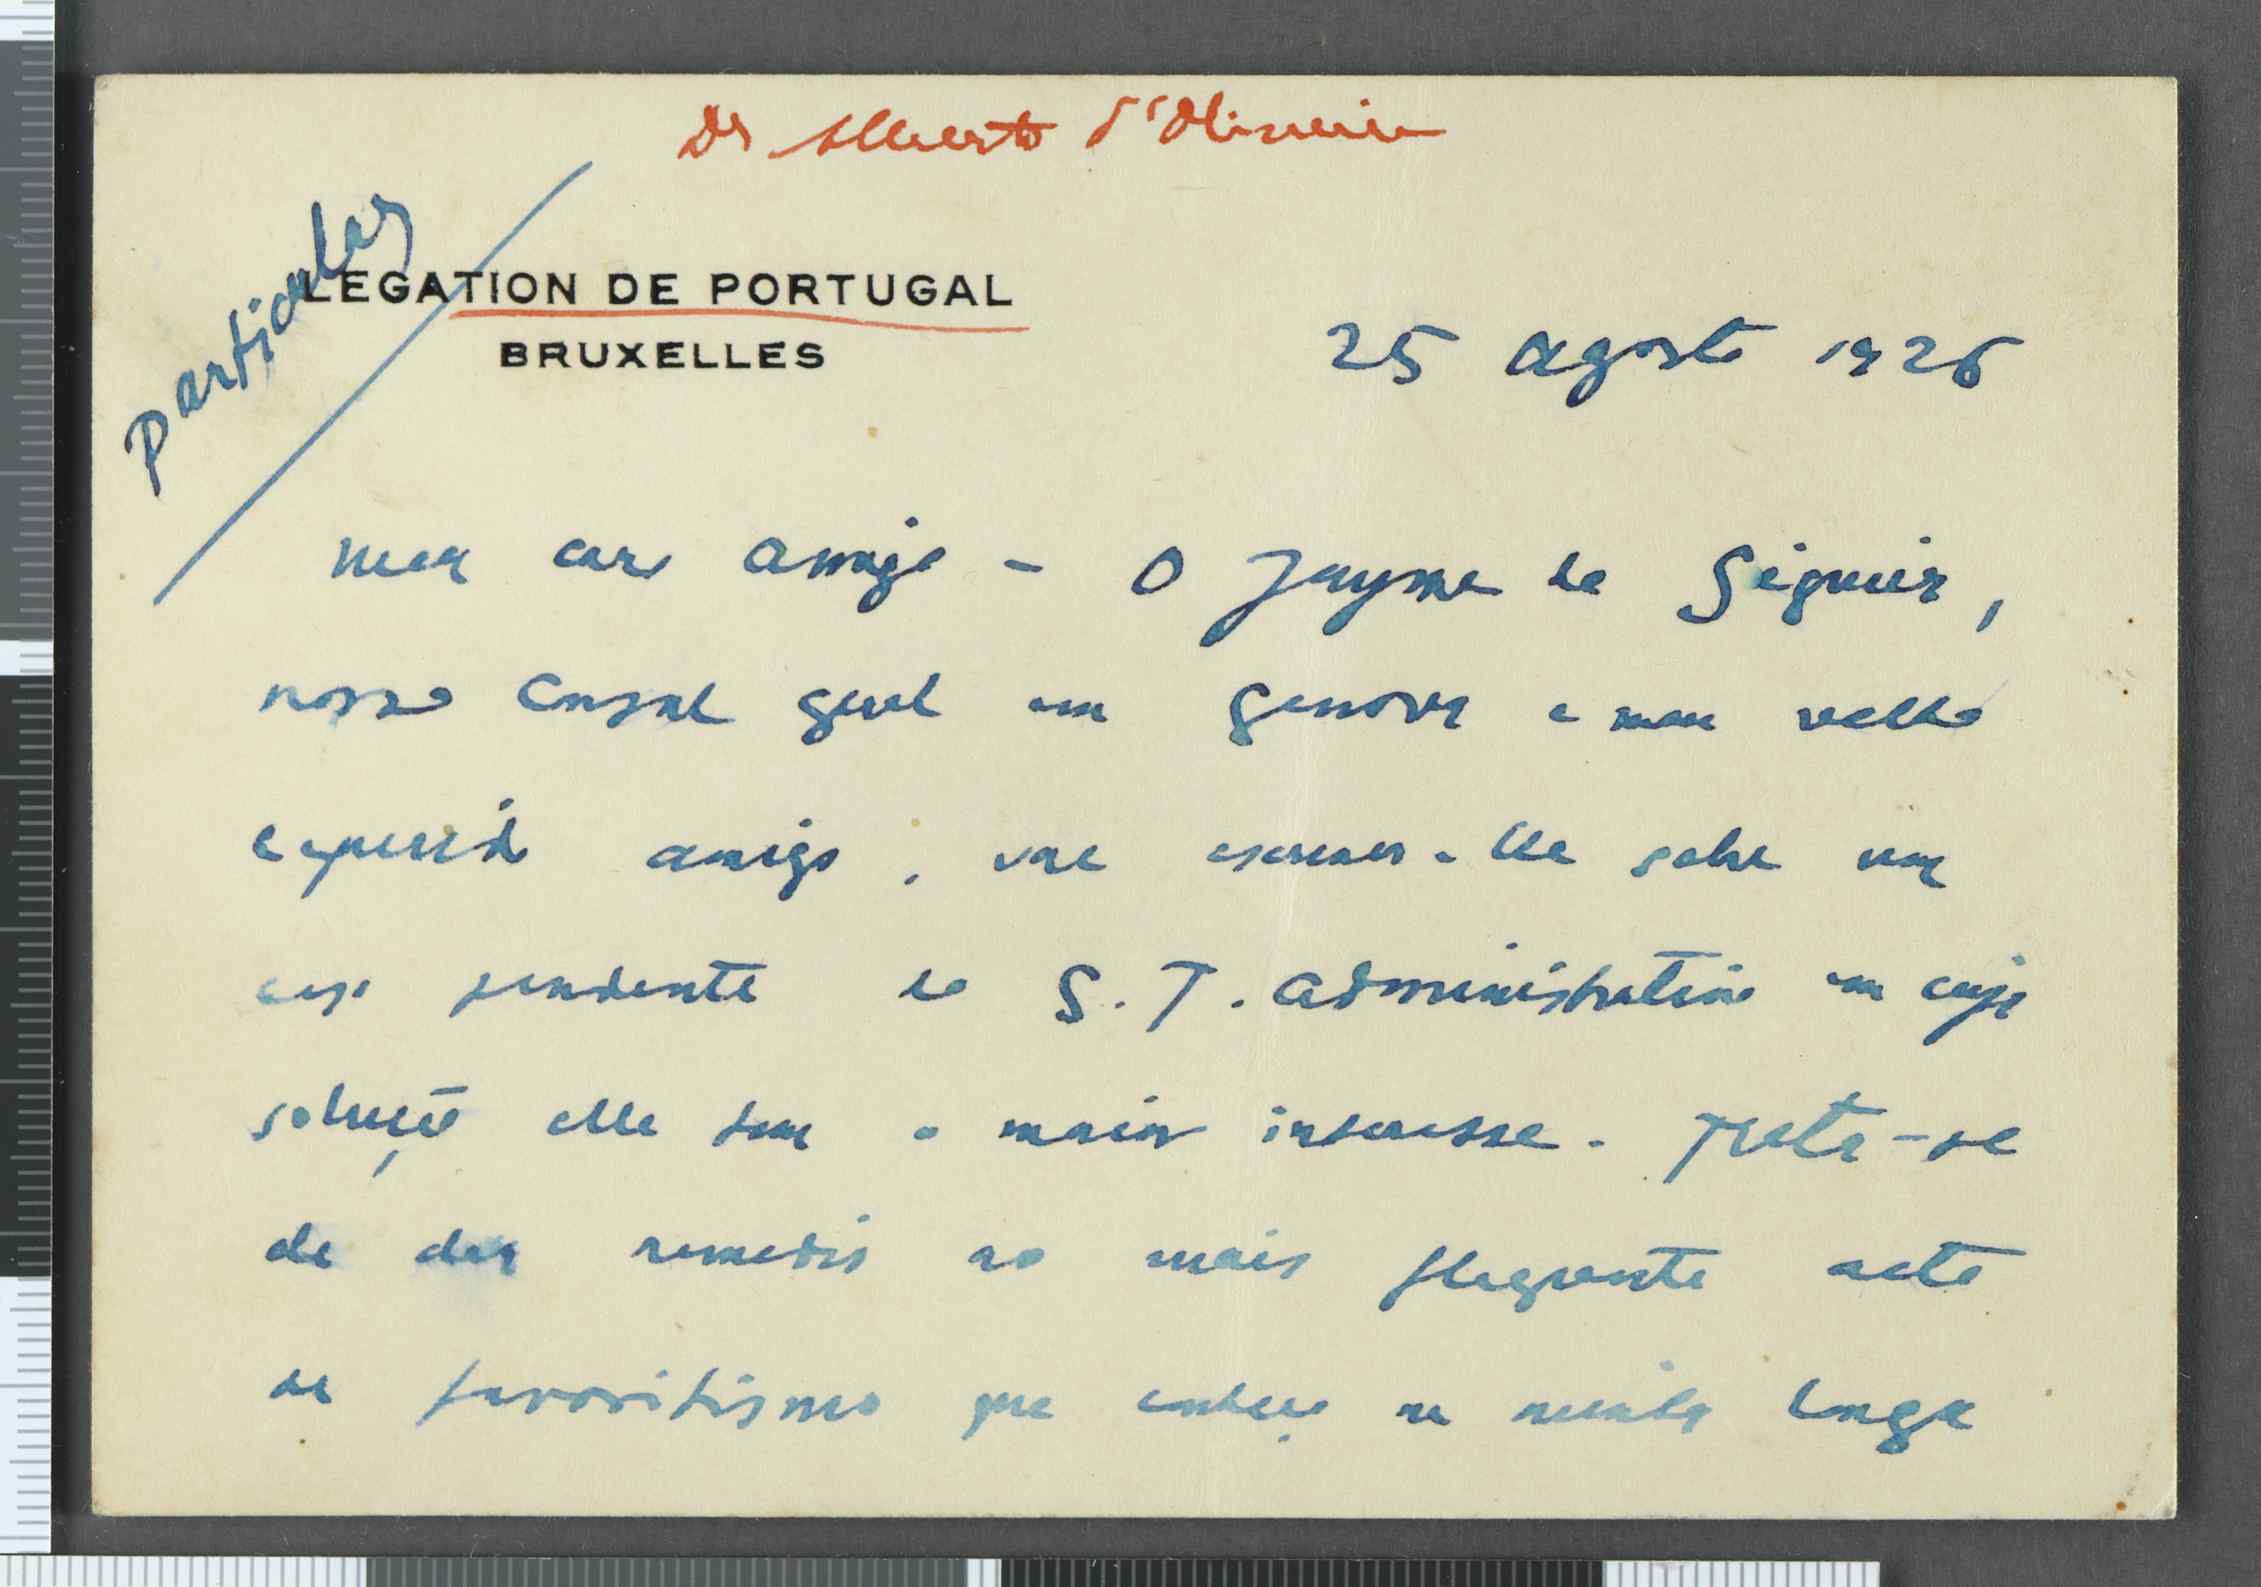 Dr Alberto d'Oliveira
particular
LEGATION DE PORTUGAL
BRUXELLES
25 agosto 1926
Meu caro amigo - O Jayme de Séguier,
nosso consul geral em Genova e meu velho
e querido amigo, vae escrever-lhe sobre um
caso pendente do S. T. Administrativo em cuja
solução elle tem o maior interesse. Trata-se
de dar remedio ao mais flagrante acto
de favoritismo que conheço na minha longa